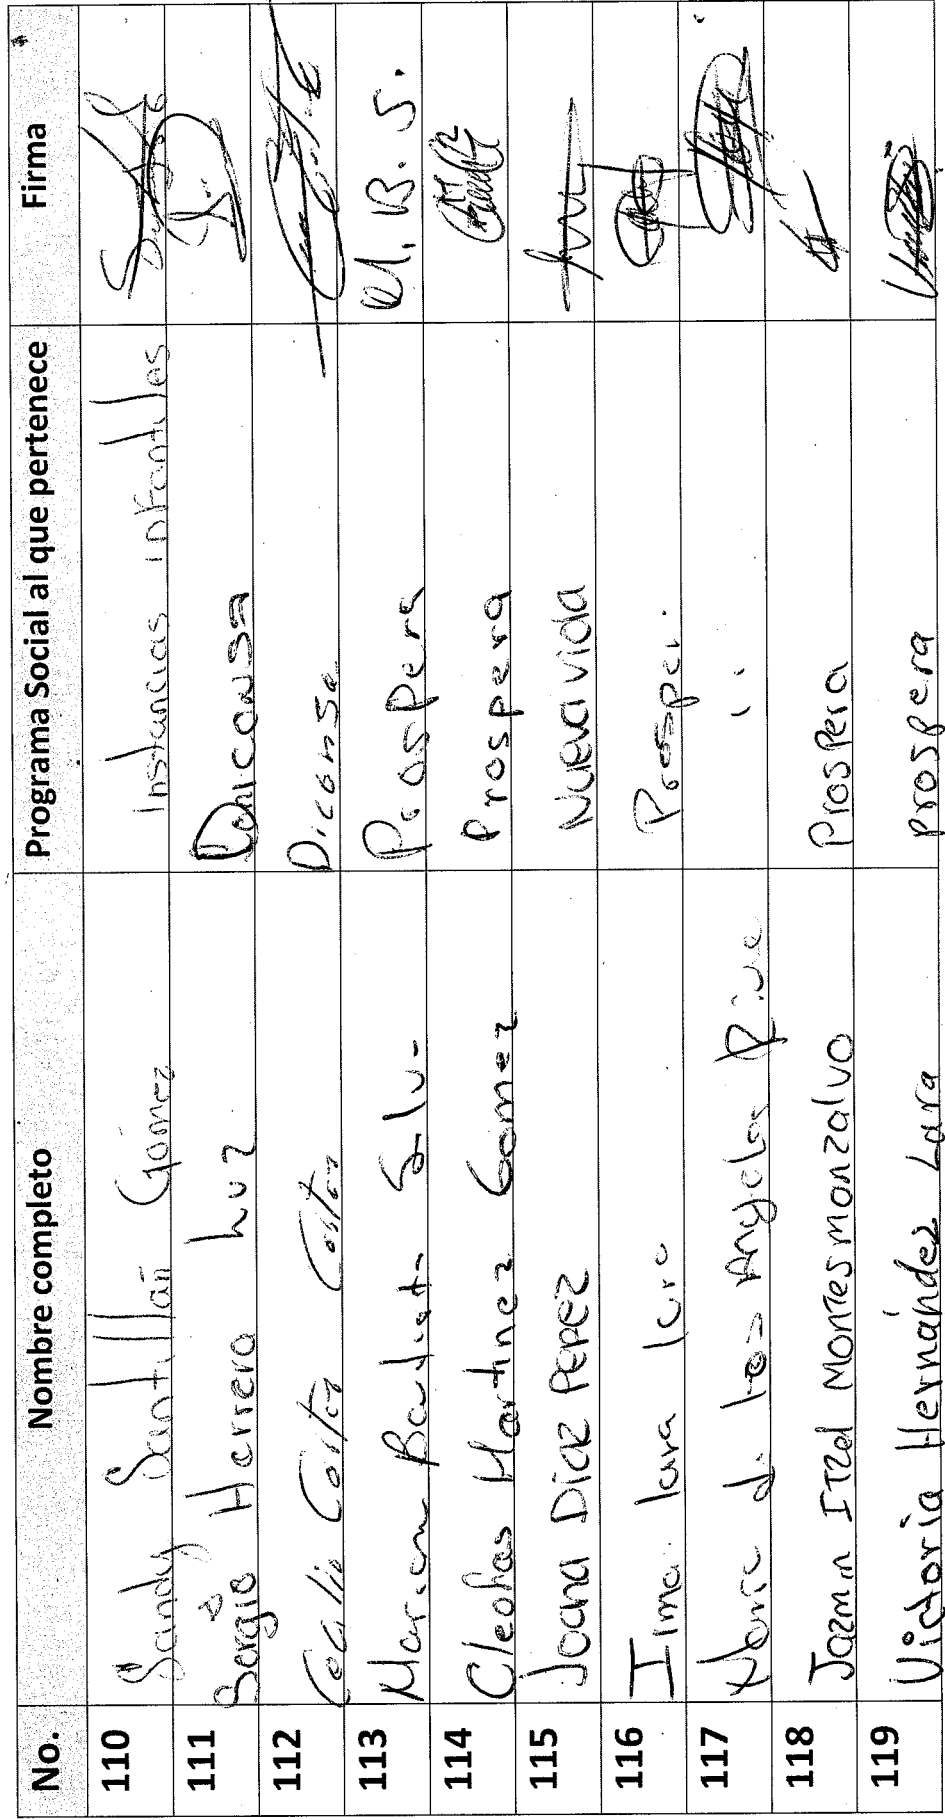 No. Nombre completo Programa Social al que pertenece Firma
110 Sandy Santillán Gómez Instancias infantiles
111 Sergio Herrera Luz Diconsa
112 Cecilia Cortez Cortez Diconsa
113 Maricem Bautista Prospera M. B. S.
114 Cleofas Martinez Gomez Prospera
115 Joana Díaz PEREZ Nueva vida
116 Irma lara lara Prosper.
117 Maria de los Angeles
118 Jazmin ITzel Montes monzalvo Prospera
119 Victoria Hernández Lara prospera